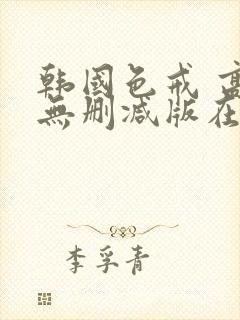 韩國色戒
無删减版在
李孚青